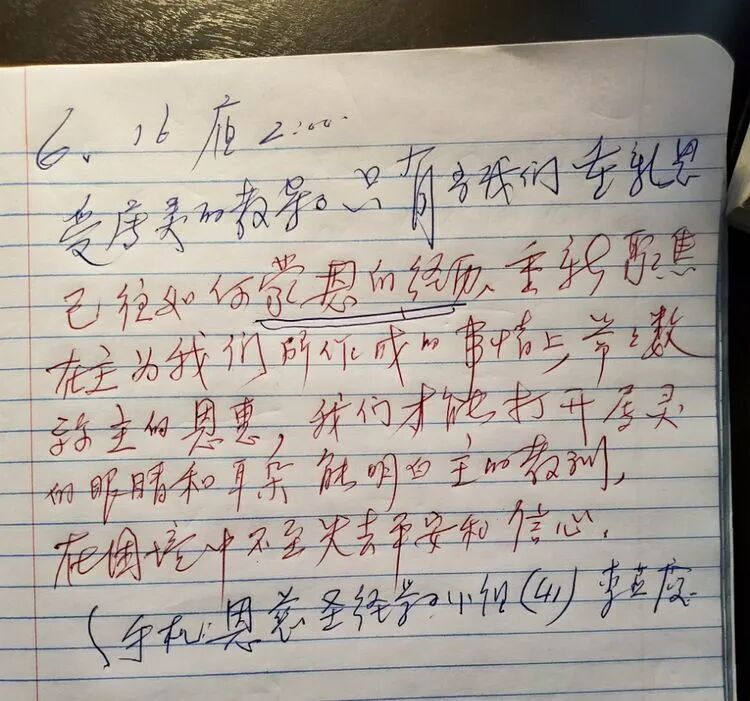 6、16 2:00
受属灵的教导。只有当我们重新思
已往如何蒙恩的经历、重新聚焦
在主为我们所作成的事情上,常数
主的恩惠,我们才能打开属灵
的眼睛和耳朵 能明白主的教训,
在困境中不至失去平安和信心.
(手机:恩慈圣经学习小组(4)